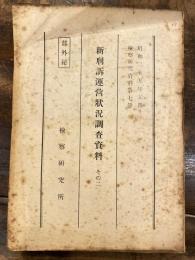 昭和二十五年五月
検察研究資料第七号
新刑訴運営狀況調査資料 その二
部外秘
検察研究所